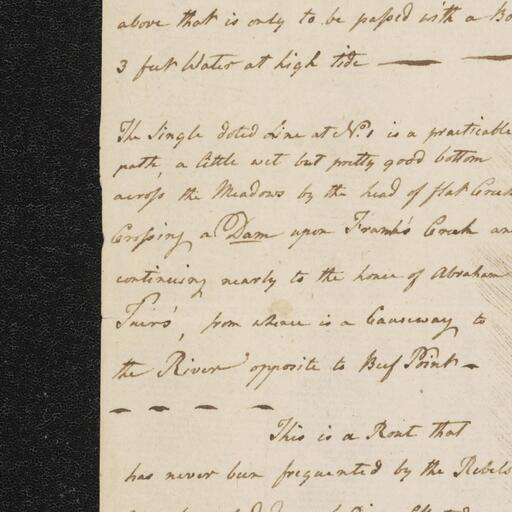 above that is only to be passed with a Bo
3 feet Water at high tide —
The Single doted Line at No. 1 is a practicable
path, a little wet but pretty good bottom
across the Meadows by the head of flat Creek
Crossing a Dam upon Frank's Creek an
continuing nearly to the house of Abraham
from whence is a Causeway to
the River opposite to Beef Point —
— — — —
This is a Rout that
has never been frequented by the Rebels